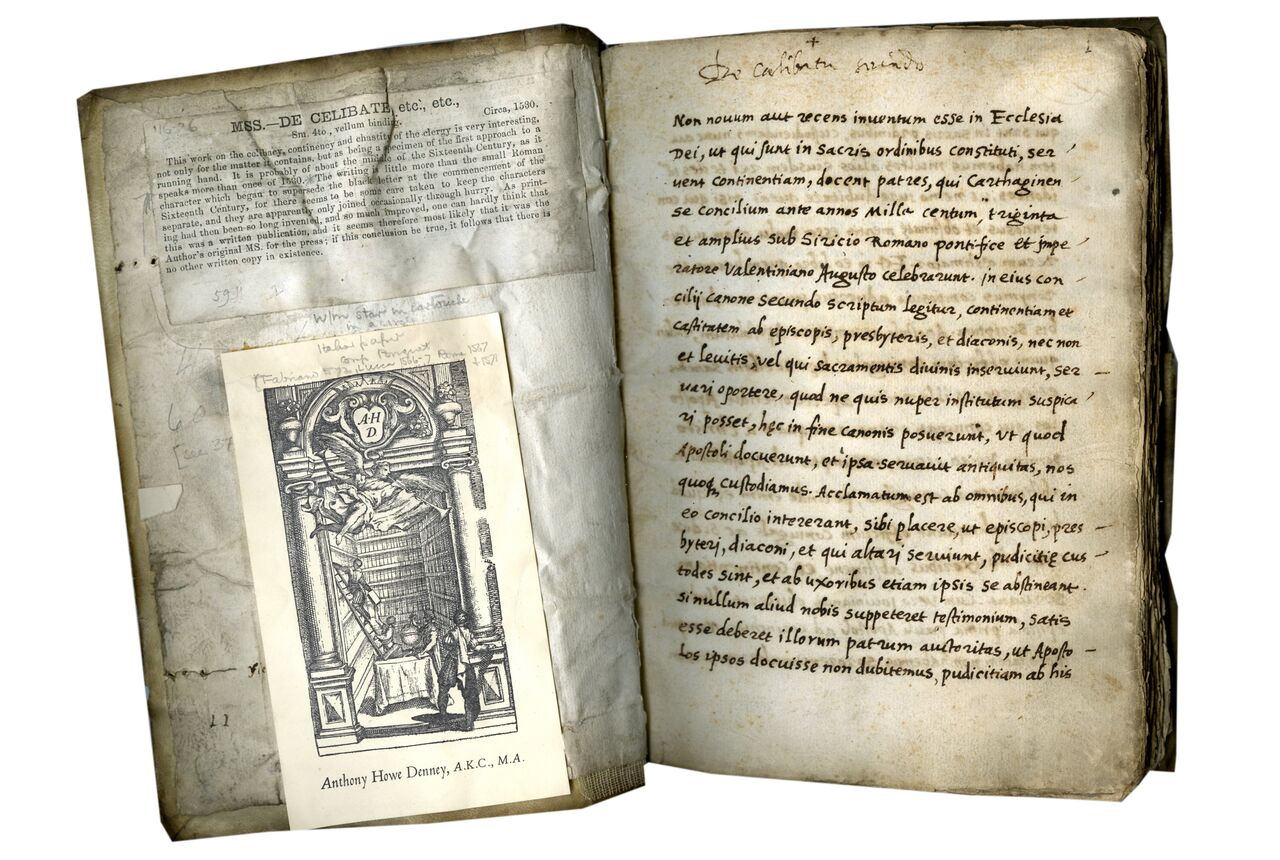 MSS.—DE CELIBATE, etc., etc.,
Sm. 4to., vellum binding. Circa, 1530.
This work on the celibacy, continency and chastity of the clergy is very interesting,
not only for the matter it contains, but as being a specimen of the first approach to a
running hand. It is probably of about the middle of the Sixteenth Century, as it
speaks more than once of 1530. The writing is little more than the small Roman
character which began to supersede the black letter at the commencement of the
Sixteenth Century, for there seems to be some care taken to keep the characters
separate, and they are apparently only joined occasionally through hurry. As print-
ing had then been so long invented, and so much improved, one can hardly think that
this was a written publication, and it seems therefore most likely that it was the
Author's original MS. for the press; if this conclusion be true, it follows that there is
no other written copy in existence.
W/m star in cartouche
Italian paper
A·H
D
Anthony Howe Denney, A.K.C., M.A.
1
De calibatu
Non nouum aut recens inuentum esse in Ecclesia
Dei, ut qui sunt in Sacris ordinibus constituti, ser
uent continentiam, docent patres, qui Carthaginen
se concilium ante annos Mille centum, triginta
et amplius sub Siricio Romano pontifice et Impe
ratore Valentiniano Augusto celebrarunt. in eius con
cilij canone secundo scriptum legitur, continentiam et
castitatem ab episcopis, presbyteris, et diaconis, nec non
et leuitis, vel qui sacramentis diuinis inseruiunt, ser
uari oportere, quod ne quis nuper institutum suspica
ri posset, hęc in fine canonis posuerunt, ut quod
Apostoli docuerunt, et ipsa seruauit antiquitas, nos
quoq; custodiamus. Acclamatum est ab omnibus, qui in
eo concilio intererant, sibi placere, ut episcopi, pres
byteri, diaconi, et qui altari seruiunt, pudicitię cus
todes sint, et ab uxoribus etiam ipsis se abstineant.
si nullum aliud nobis suppeteret testimonium, satis
esse deberet illorum patrum auctoritas, ut Aposto
los ipsos docuisse non dubitemus, pudicitiam ab his